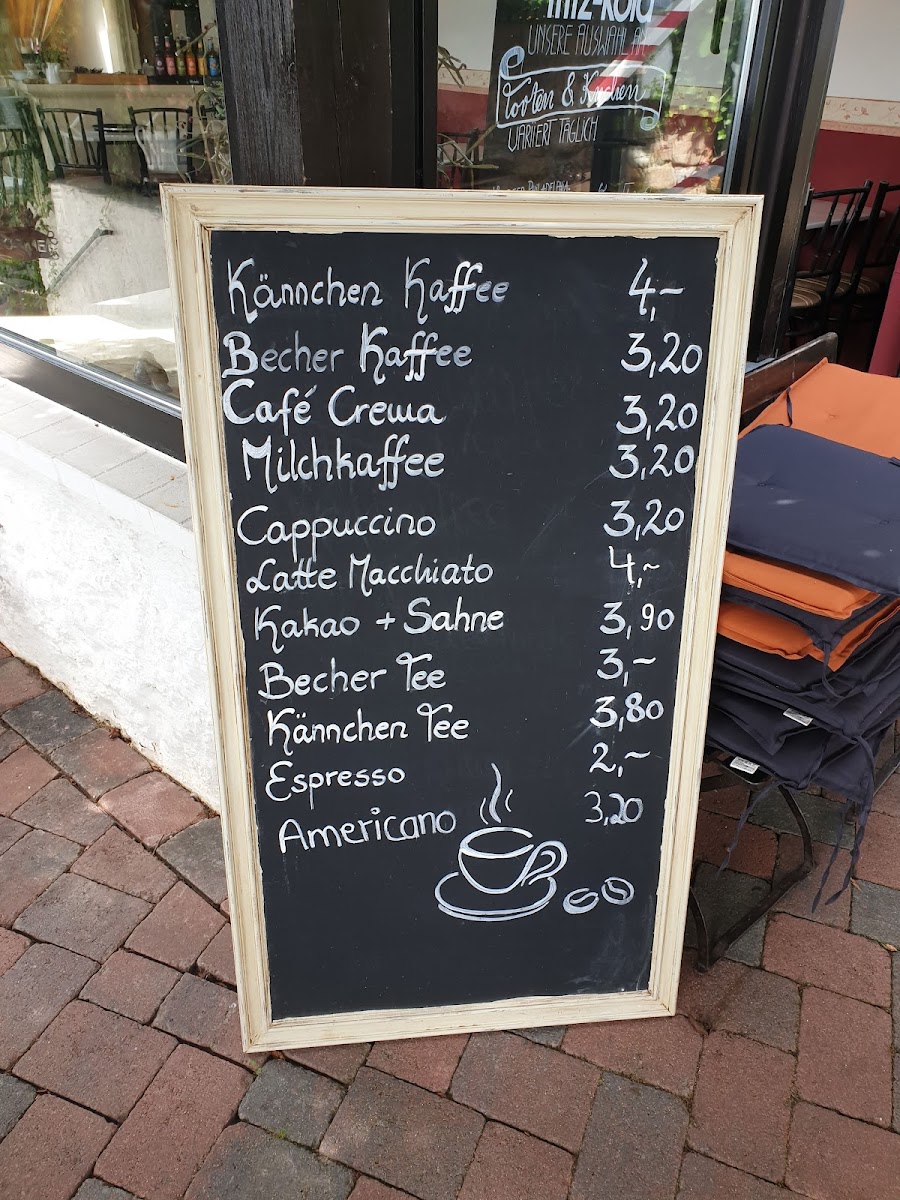 fritz-kola
UNSERE AUSWAHL AN
Torten & Kuchen
VARIIERT TÄGLICH
Kännchen Kaffee 4,-
Becher Kaffee 3,20
Café Crema 3,20
Milchkaffee 3,20
Cappuccino 3,20
Latte Macchiato 4,-
Kakao + Sahne 3,90
Becher Tee 3,-
Kännchen Tee 3,80
Espresso 2,-
Americano 3,20